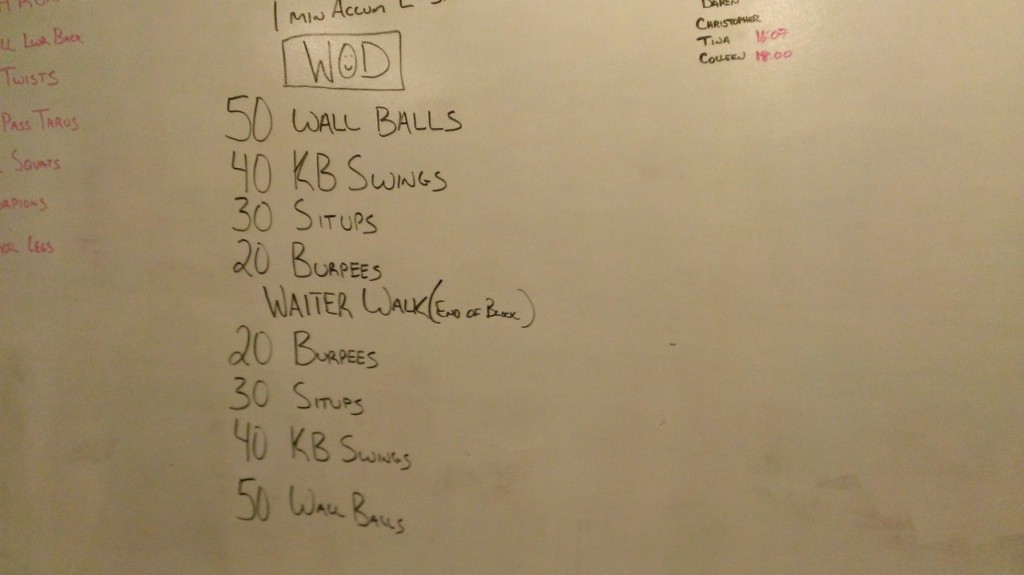 1 MIN ACCUM L
WOD
50 WALL BALLS
40 KB SWINGS
30 SITUPS
20 BURPEES
WAITER WALK (END OF BLOCK)
20 BURPEES
30 SITUPS
40 KB SWINGS
50 WALL BALLS
LWR BACK
TWISTS
PASS TARUS
SQUATS
LEGS
DAREN
CHRISTOPHER
TINA 16:07
COLLEEN 18:00